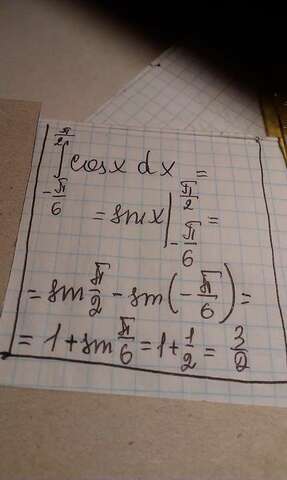 ∫_{-π/6}^{π/2} cos x dx =
= sin x |_{-π/6}^{π/2} =
= sin π/2 - sin(-π/6) =
= 1 + sin π/6 = 1 + 1/2 = 3/2